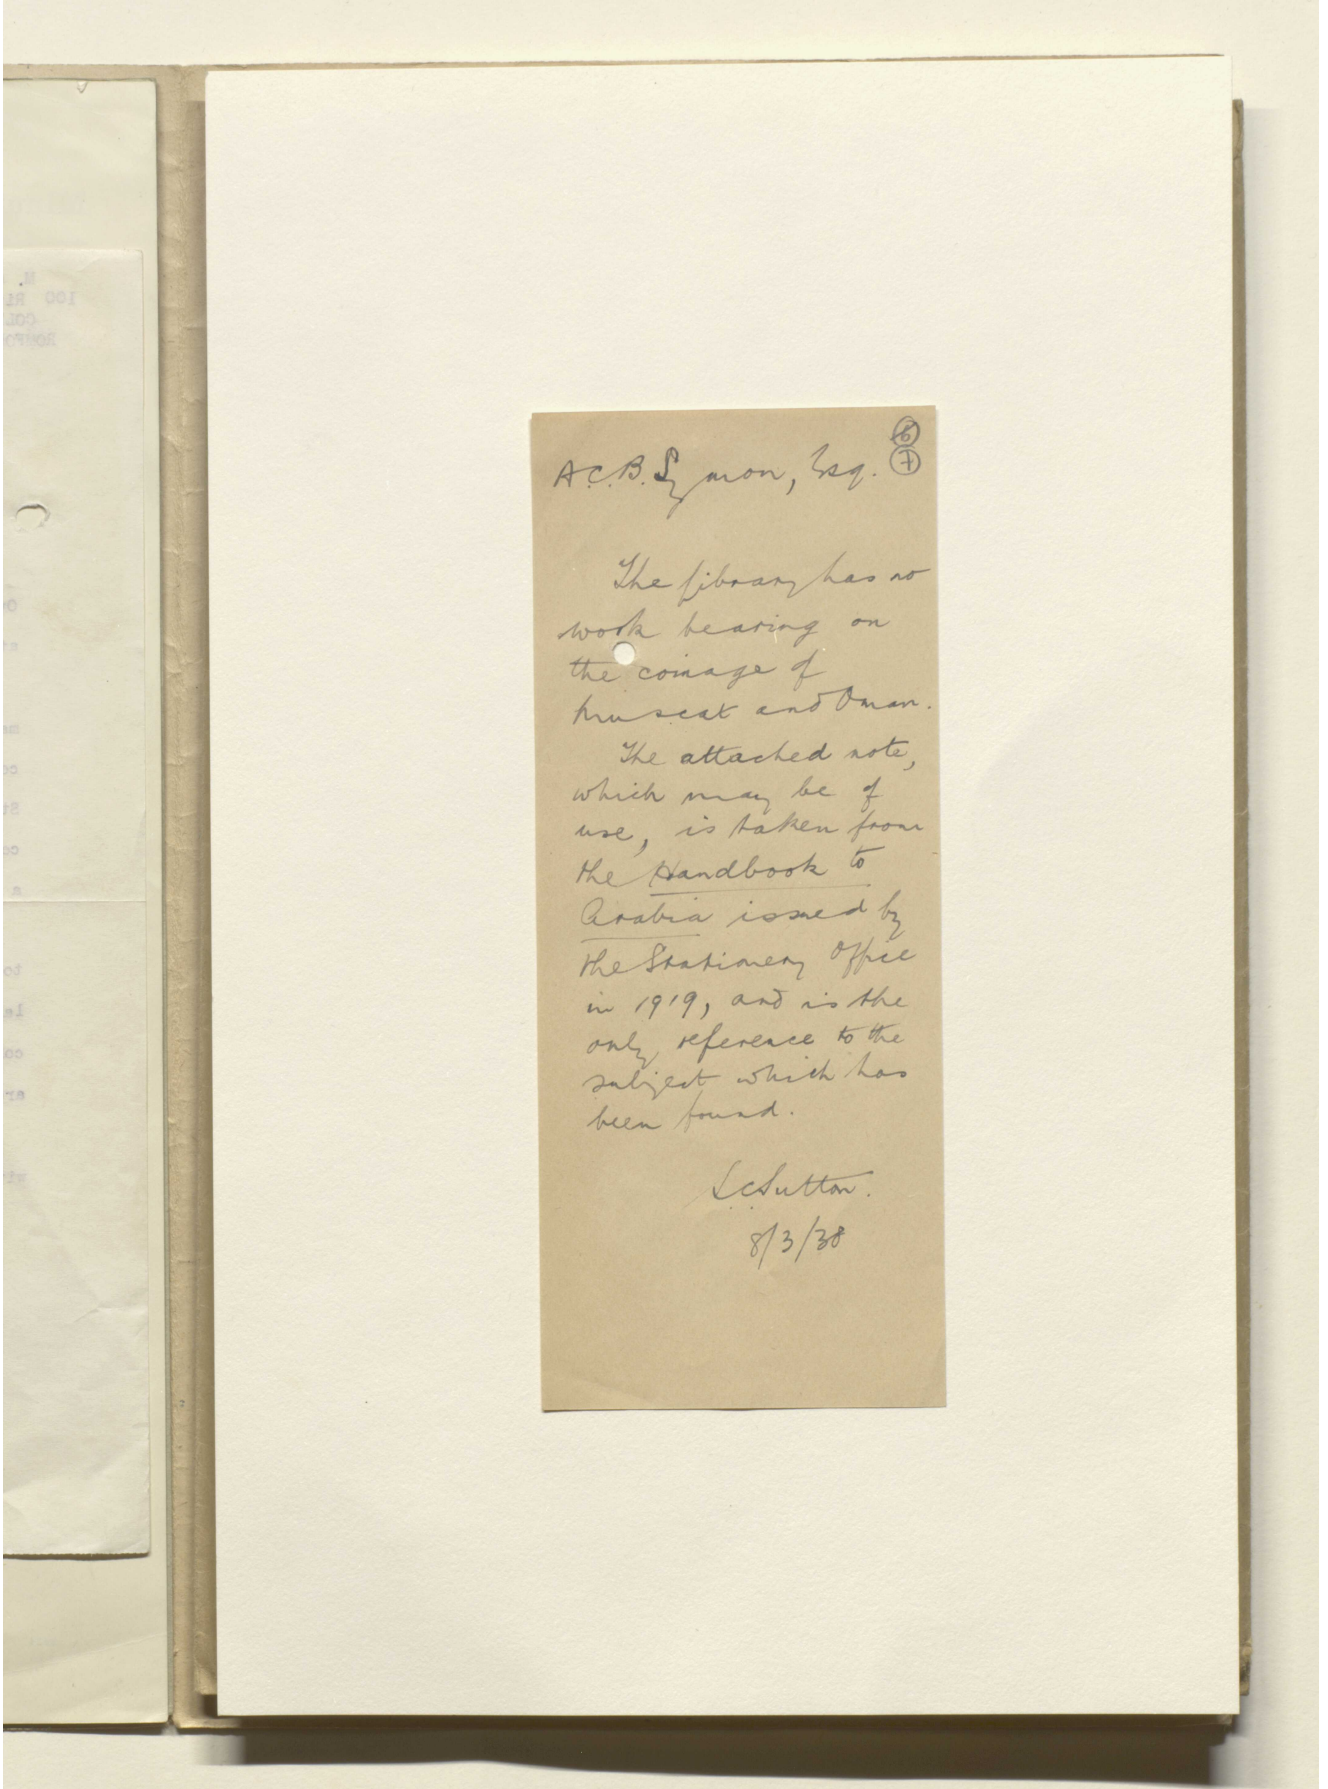 6
7
A.C.B. Symon, Esq.
The Library has no
work bearing on
the coinage of
Muscat and Oman.
The attached note,
which may be of
use, is taken from
the Handbook to
Arabia issued by
the Stationery Office
in 1919, and is the
only reference to the
subject which has
been found.
S.C. Sutton.
8/3/38
M.
100
COL
ROMFO